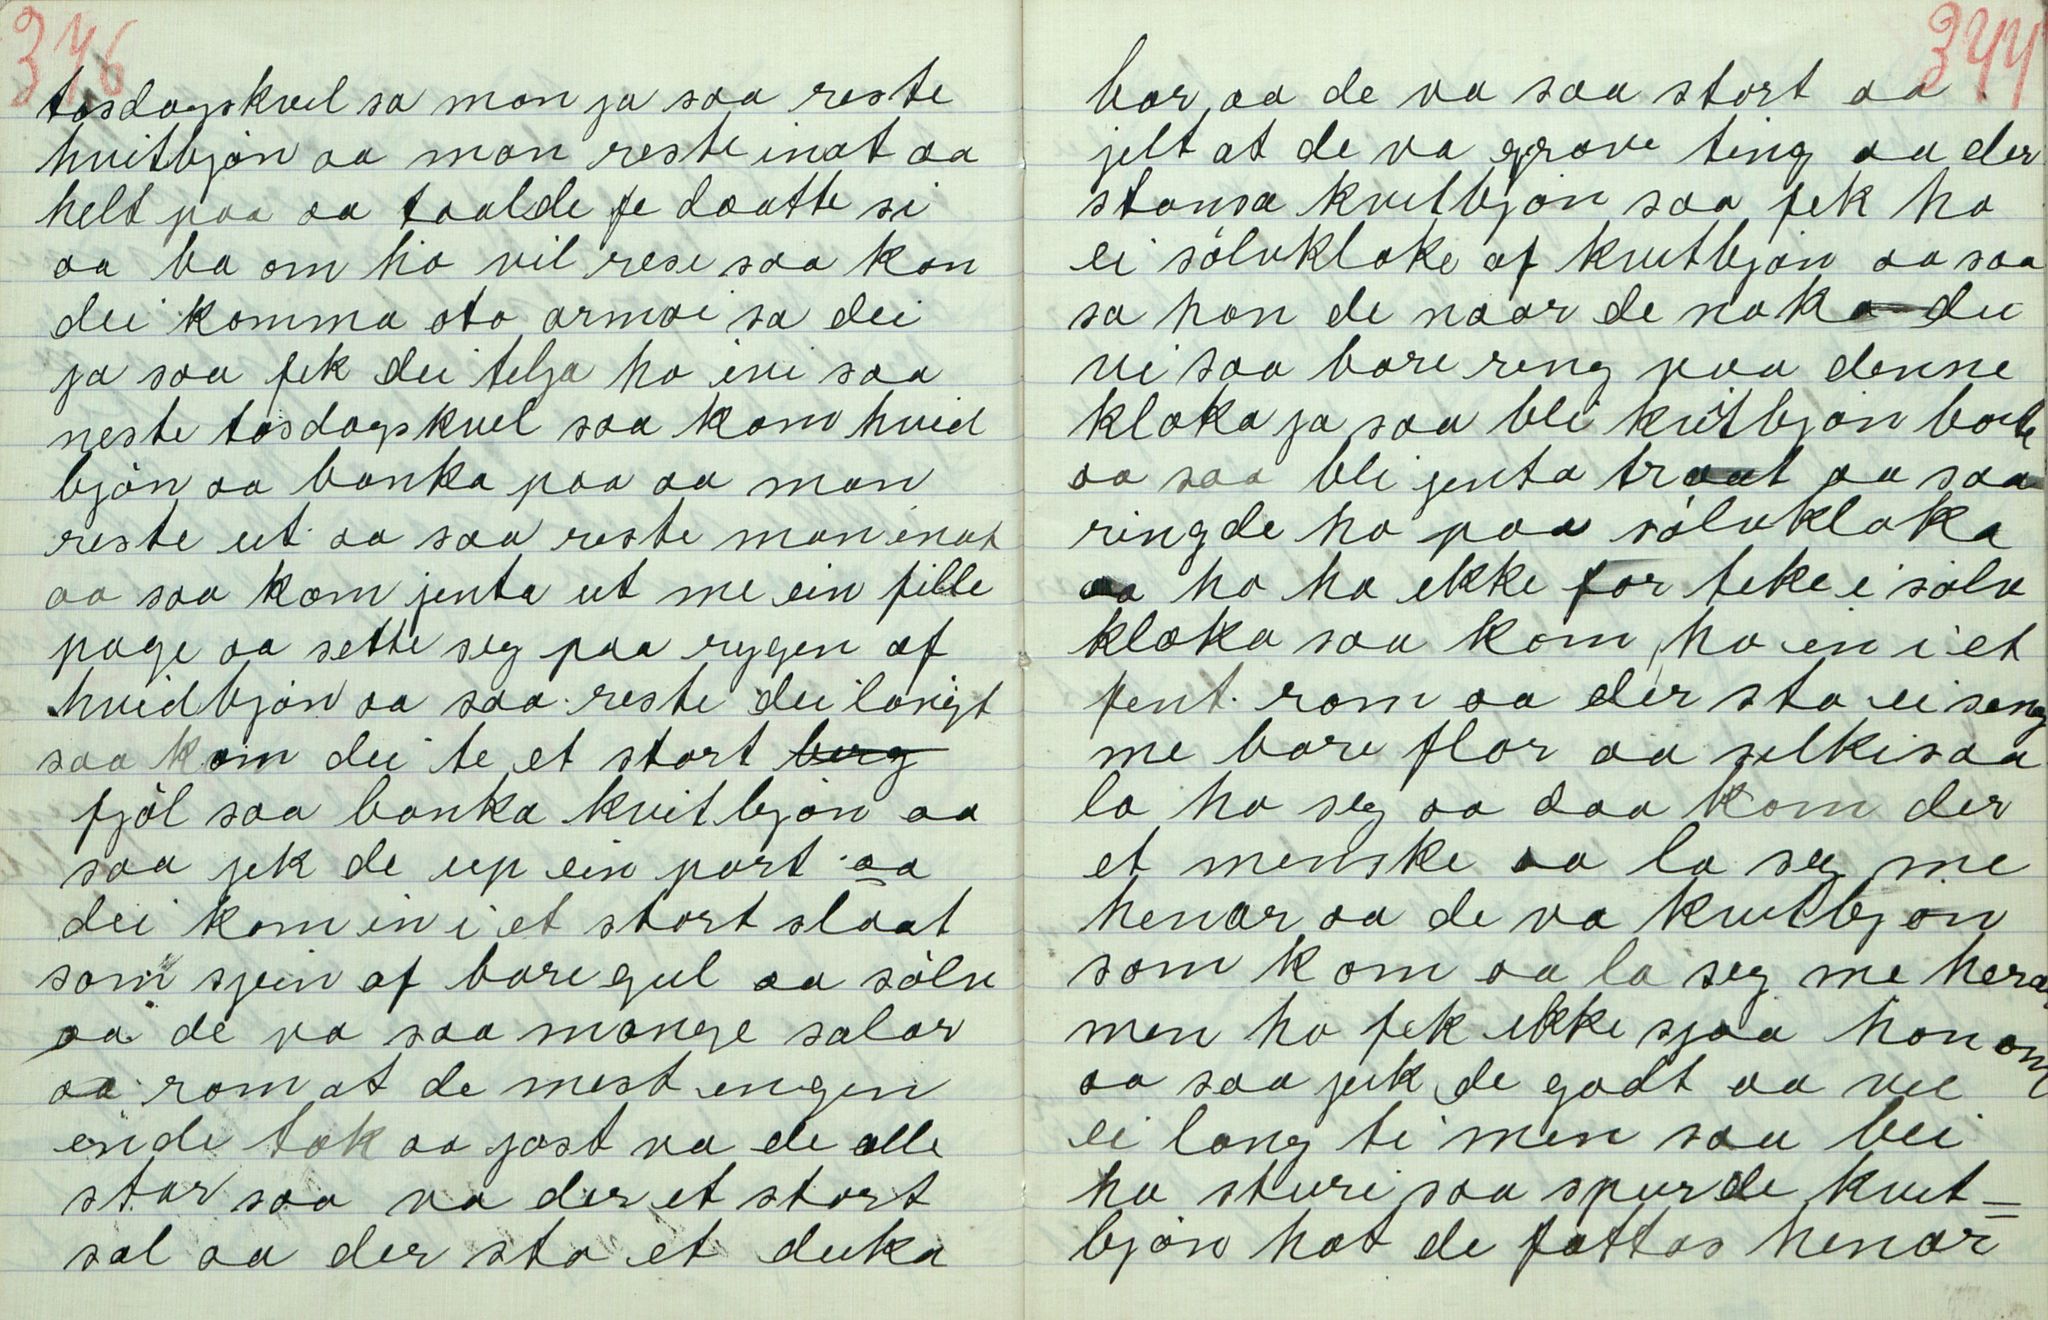 376
tosdagskvel sa man ja saa reste
hvitbjøn aa man reste inat aa
helt paa aa taalde te daatte si
aa ba om ho vil rese saa kan
dei komma oto armoi sa dei
ja saa fek dei telja ho ivi saa
neste tosdagskvel saa kom hvid
bjøn aa banka paa aa man
reste ut aa saa reste man inat
aa saa kom jenta ut me ein fille
page aa sette seg paa rygen af
hvidbjøn aa saa reste dei langt
saa kom dei te et stort berg
fjøl saa banka kvitbjøn aa
saa jek de up ein port aa
dei kom in i et stort slaat
som sjein af bare gul aa sølv
aa de va saa mange salar
aa rom at de mest engin
ende tok aa jost va de alle
star saa va der et stort
sal aa der sto et duka
377
bor, aa de va saa stort aa
jelt at de va grove ting aa der
stansa kvitbjøn saa fek ho
ei sølvkloke af kvitbjøn aa saa
sa han de naar de noko dei
vi saa bare reng paa denne
kloka ja saa bli kvitbjøn borte
aa saa bli jenta traat aa saa
ringde ho paa sølvkloka
aa ho ha ikke for teke i sølv
kloka saa kom ho en i et
pent rom aa der sto ei seng
me bare flor aa selki saa
la ho seg aa daa kom der
et menske aa la seg me
henar aa de va kvitbjøn
som kom aa la seg me henar
men ho fek ikke sjaa honom
aa saa jek de godt aa vel
ei lang ti men saa blei
ho sturi saa spurde kvit=
bjøn hot de fattas henar